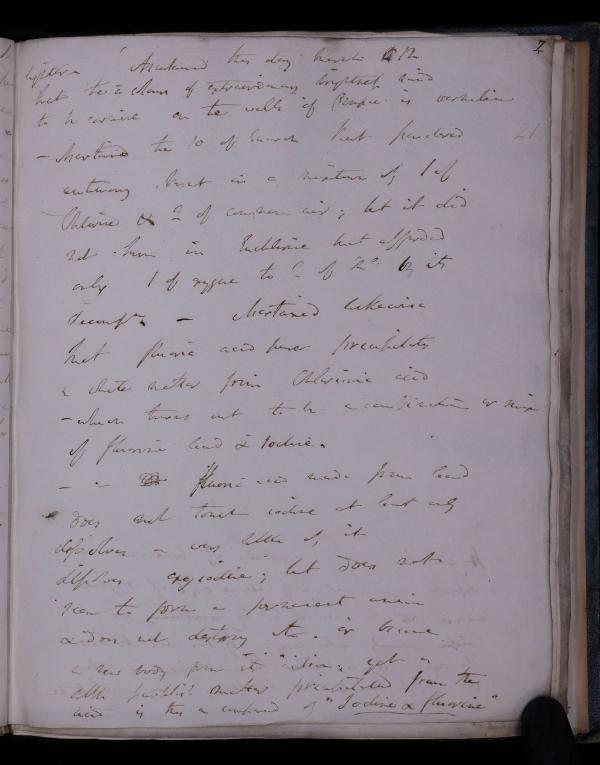 2
this day
that the colour of extraordinary brightness used
to be carmine on the walls of Pompeii is vermilion
- Ascertained the 10 of March that powdered 21
antimony burnt in a mixture of 1 of
Chlorine & 2 of common air; but it did
not burn in Euchlorine but afforded
only 1 of oxygene to 2 of by its
decompn. - Ascertained likewise
that fluoric acid pure precipitates
a white matter from Chlorionic acid
- which turns out to be a combination or
of fluorine lead & Iodine.
- fluoric acid made from lead
does not touch iodine at least only
dissolves a very little of it
dissolves oxyiodine; but does not
seem to form a permanent union
& does not destroy it. or become
a new body from its action: yet a
little matter precipitated from the
acid is this a compound of "Iodine & fluorine"